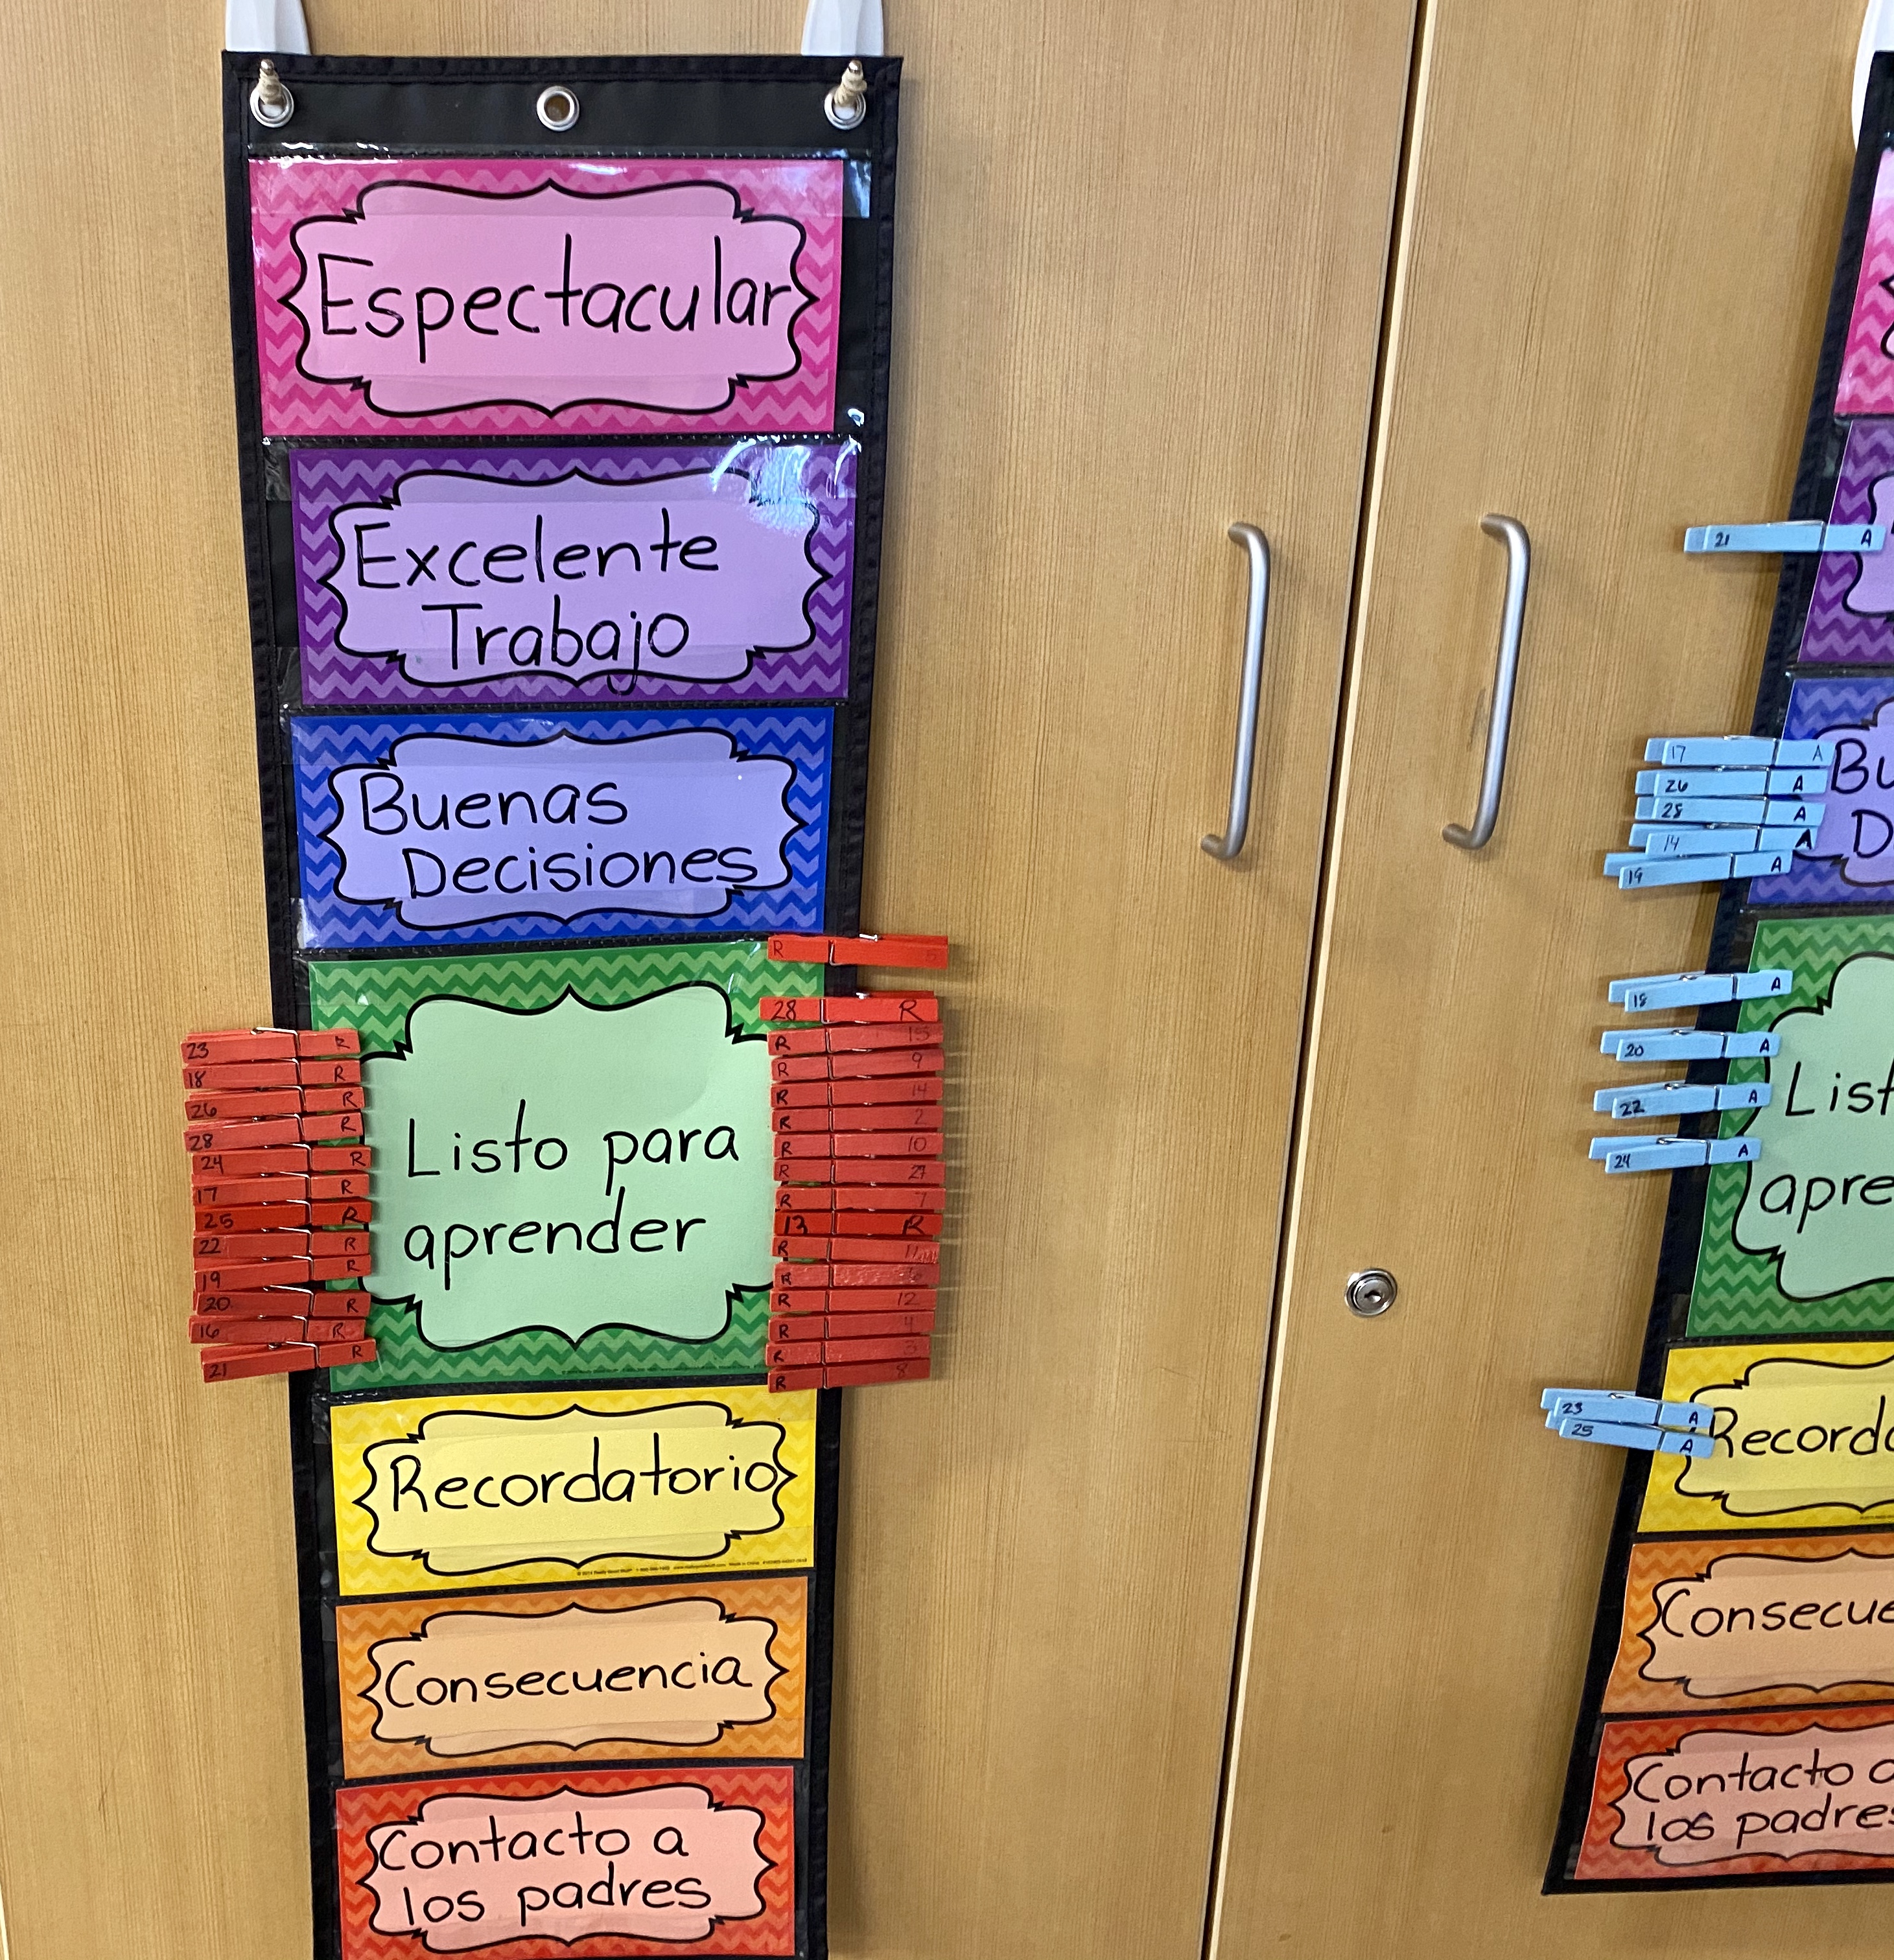 Espectacular
Excelente
Trabajo
Buenas
Decisiones
Listo para
aprender
Recordatorio
Consecuencia
Contacto a
los padres
23 R
18 R
26 R
28 R
24 R
17 R
25 R
22 R
19 R
20 R
16 R
21 R
R 5
28 R
R 15
R 9
R 14
R 2
R 10
R
R 7
13 R
R 11
R
R 12
R 4
R 3
R 8
21 A
17 A
26 A
28 A
14 A
19 A
18 A
20 A
22 A
24 A
23 A
25 A
Bu
D
List
apre
Recorda
Consecue
Contacto a
los padres